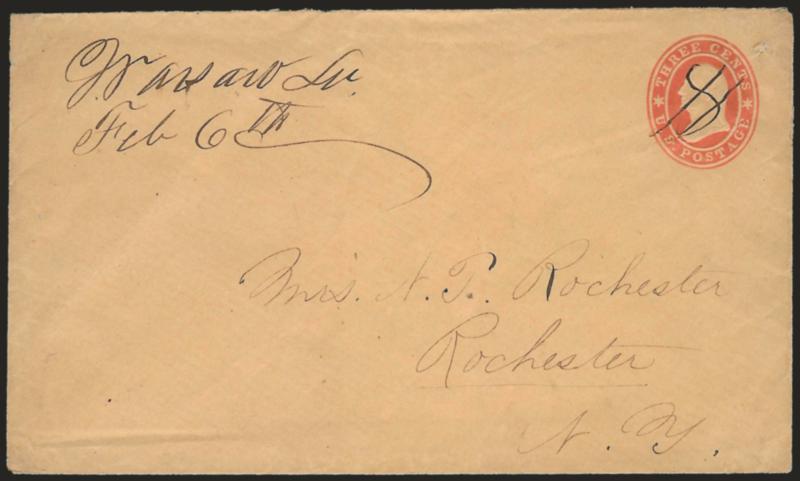 Warsaw Lu.
Feb 6TH
THREE CENTS
U.S. POSTAGE
Mrs. N. T. Rochester
Rochester
N. Y.